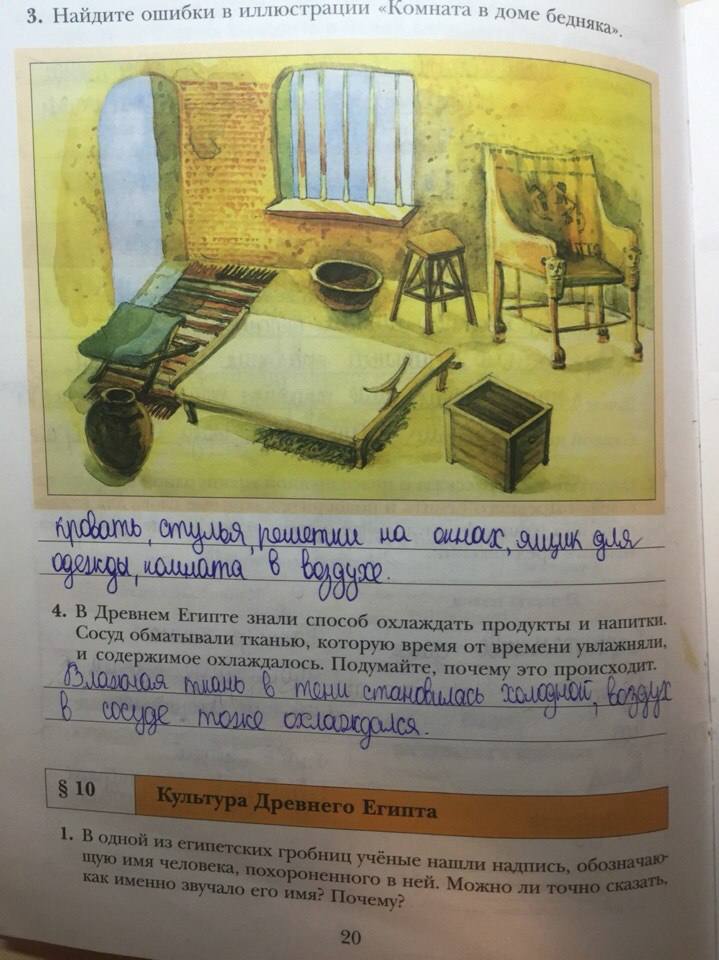 3. Найдите ошибки в иллюстрации «Комната в доме бедняка».
кровать, стулья, решетки на окнах, ящик для
одежды, комната в воздухе.
4. В Древнем Египте знали способ охлаждать продукты и напитки.
Сосуд обматывали тканью, которую время от времени увлажняли,
и содержимое охлаждалось. Подумайте, почему это происходит.
Влажная ткань в тени становилась холодной, воздух
в сосуде тоже охлаждался.
§ 10 Культура Древнего Египта
1. В одной из египетских гробниц учёные нашли надпись, обозначаю-
щую имя человека, похороненного в ней. Можно ли точно сказать,
как именно звучало его имя? Почему?
20